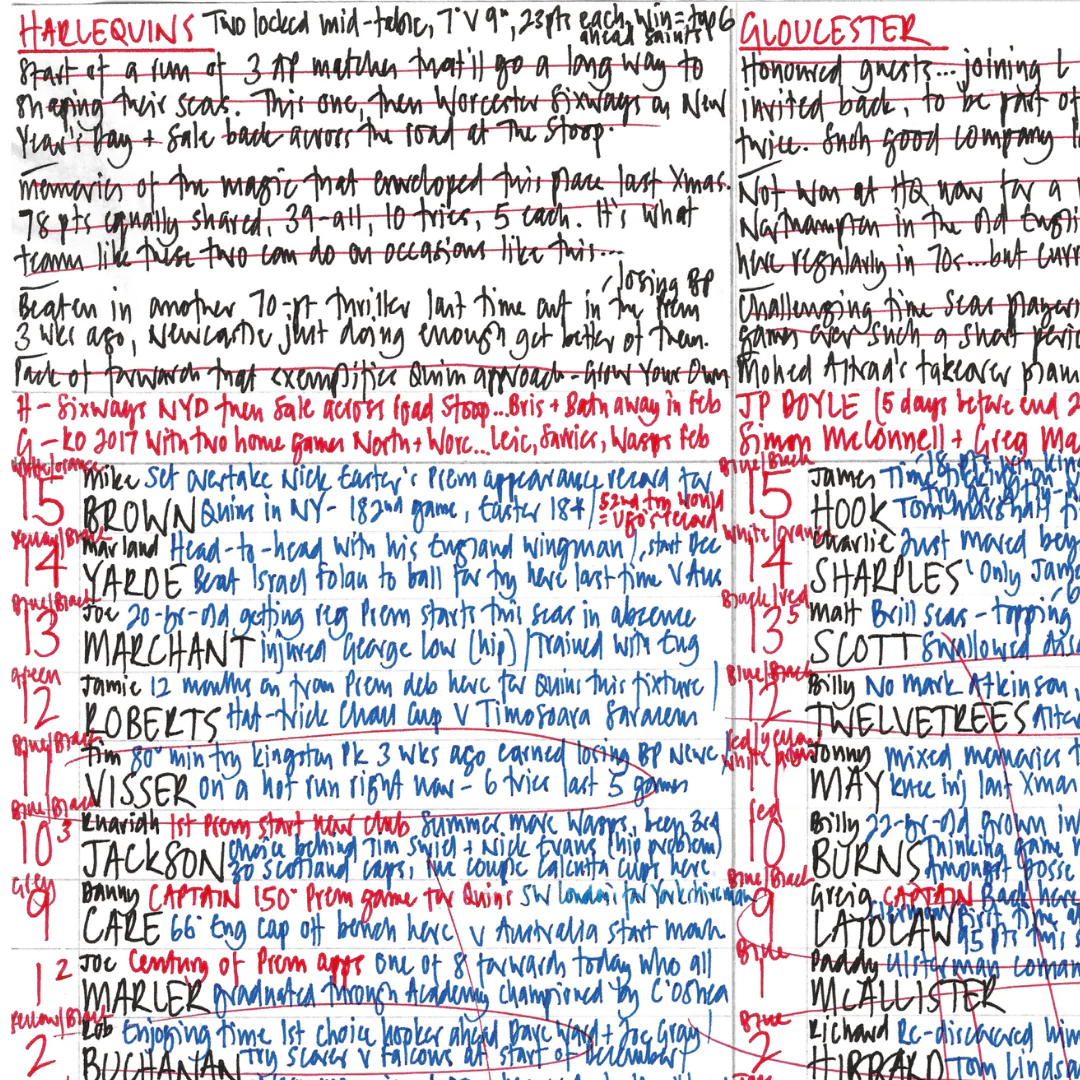 HARLEQUINS Two locked mid-table, 7° V 9°, 23pts each, win = top 6
ahead Saints
Start of a run of 3 AP matches that'll go a long way to
shaping their seas. This one, then Worcester Sixways on New
Year's Day + Sale back across the road at The Stoop.
Memories of the magic that enveloped this place last Xmas.
78 pts equally shared, 39-all, 10 tries, 5 each. It's what
teams like these two can do on occasions like this...
losing BP
Beaten in another 70-pt thriller last time out in the Prem
3 wks ago, Newcastle just doing enough get better of them.
Pack of forwards that exemplifies Quins approach - Grow Your Own
H - Sixways NYD then Sale across road Stoop... Bris + Bath away in Feb
G - KO 2017 with two home games North + Worc... Leic, Sarries, Wasps Feb
White/Orange
15 Mike Set overtake Nick Easter's Prem appearance record for
BROWN Quins in NY - 182nd game, Easter 184 / 52nd try would
= Ugo's record
Yellow/Black
14 Marland Head-to-head with his England wingman), start Dec
YARDE Beat Israel Folau to ball for try here last time V Aus
Blue/Black
13 Joe 20-yr-old getting reg Prem starts this seas in absence
MARCHANT injured George Low (hip) / Trained with Eng
Green
12 Jamie 12 months on from Prem deb here for Quins this fixture
ROBERTS Hat-trick Chall Cup V Timosoara Saracens
Blue/Black
11 Tim 80° min try Kingston Pk 3 wks ago earned losing BP Newc
VISSER on a hot run right now - 6 tries last 5 games
Blue/Black
10 3 Ruaridh 1st Prem start new club Summer move Wasps, been 3rd
JACKSON choice behind Tim Swiel + Nick Evans (hip problem)
30 Scotland caps, inc couple Calcutta Cups here
Grey
9 Danny CAPTAIN 150° Prem game for Quins SW London for Yorkshireman
CARE 66° Eng cap off bench here V Australia start month
1 2 Joe Century of Prem apps One of 8 forwards today who all
MARLER graduated through Academy championed by C'OShea
Yellow/Black
2 Rob Enjoying time 1st choice hooker ahead Dave Ward + Joe Gray
BUCHANAN Try scorer V Falcons at start of December
GLOUCESTER
Honoured guests... joining
invited back, to be part of
twice. Such good company
Not won at HQ now for a
Northampton in the old Engli
here regularly in 70s... but curr
Challenging time seas players
games over such a short peri
Mohed Altrad's takeover plann
JP DOYLE (5 days before end 2
Simon McConnell + Greg Ma
Blue/Black
15 James
HOOK Tom Marshall fi
White/Orange
14 Charlie Just moved bey
SHARPLES Only Jam
Black/red
13 5 Matt Brill seas - topping
SCOTT Swallowed
Blue/Black
12 Billy No Mark Atkinson,
TWELVETREES After
red/yellow
white green
11 Jonny mixed memories t
MAY Knee inj last Xmas
red
10 Billy 22-yr-old grown in
BURNS Thinking game
Amongst posse
Blue/Black
9 Greig CAPTAIN Back here
LAIDLAW first time
95 pts this s
Blue
1 Paddy Ulsterman coman
MCALLISTER
Blue
2 Richard Re-discovered him
HIBBARD Tom Lindsa